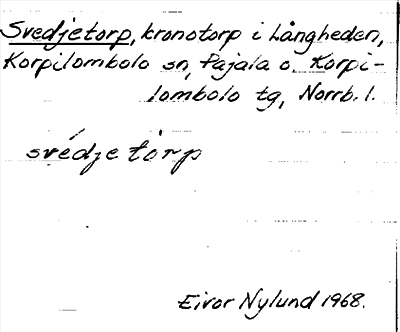 Svedjetorp, kronotorp i Långheden,
Korpilombolo sn, Pajala o. Korpi-
lombolo tg, Norrb. l.
svédje tòrp
Eivor Nylund 1968.